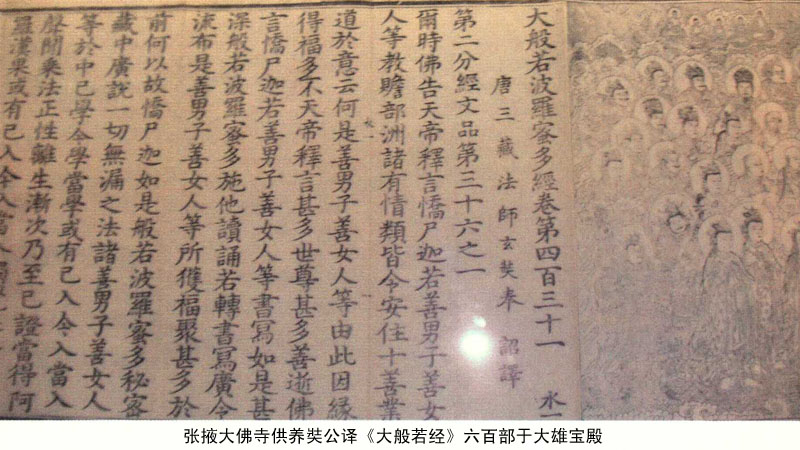 大般若波羅蜜多經卷第四百三十一 水一
唐三藏法師玄奘奉 詔譯
第二分經文品第三十六之一
爾時佛告天帝釋言憍尸迦若善男子善女
人等教贍部洲諸有情類皆令安住十善業
道於意云何是善男子善女人等由此因緣
得福多不天帝釋言甚多世尊甚多善逝佛
言憍尸迦若善男子善女人等書寫如是甚
深般若波羅蜜多施他讀誦若轉書寫廣令
流布是善男子善女人等所獲福聚甚多於
前何以故憍尸迦如是般若波羅蜜多秘密
藏中廣說一切無漏之法諸善男子善女人
等於中已學今學當學或有已入今入當入
聲聞乘法正性離生漸次乃至已證當得阿
羅漢果或有已入今入當入
张掖大佛寺供养奘公译《大般若经》六百部于大雄宝殿